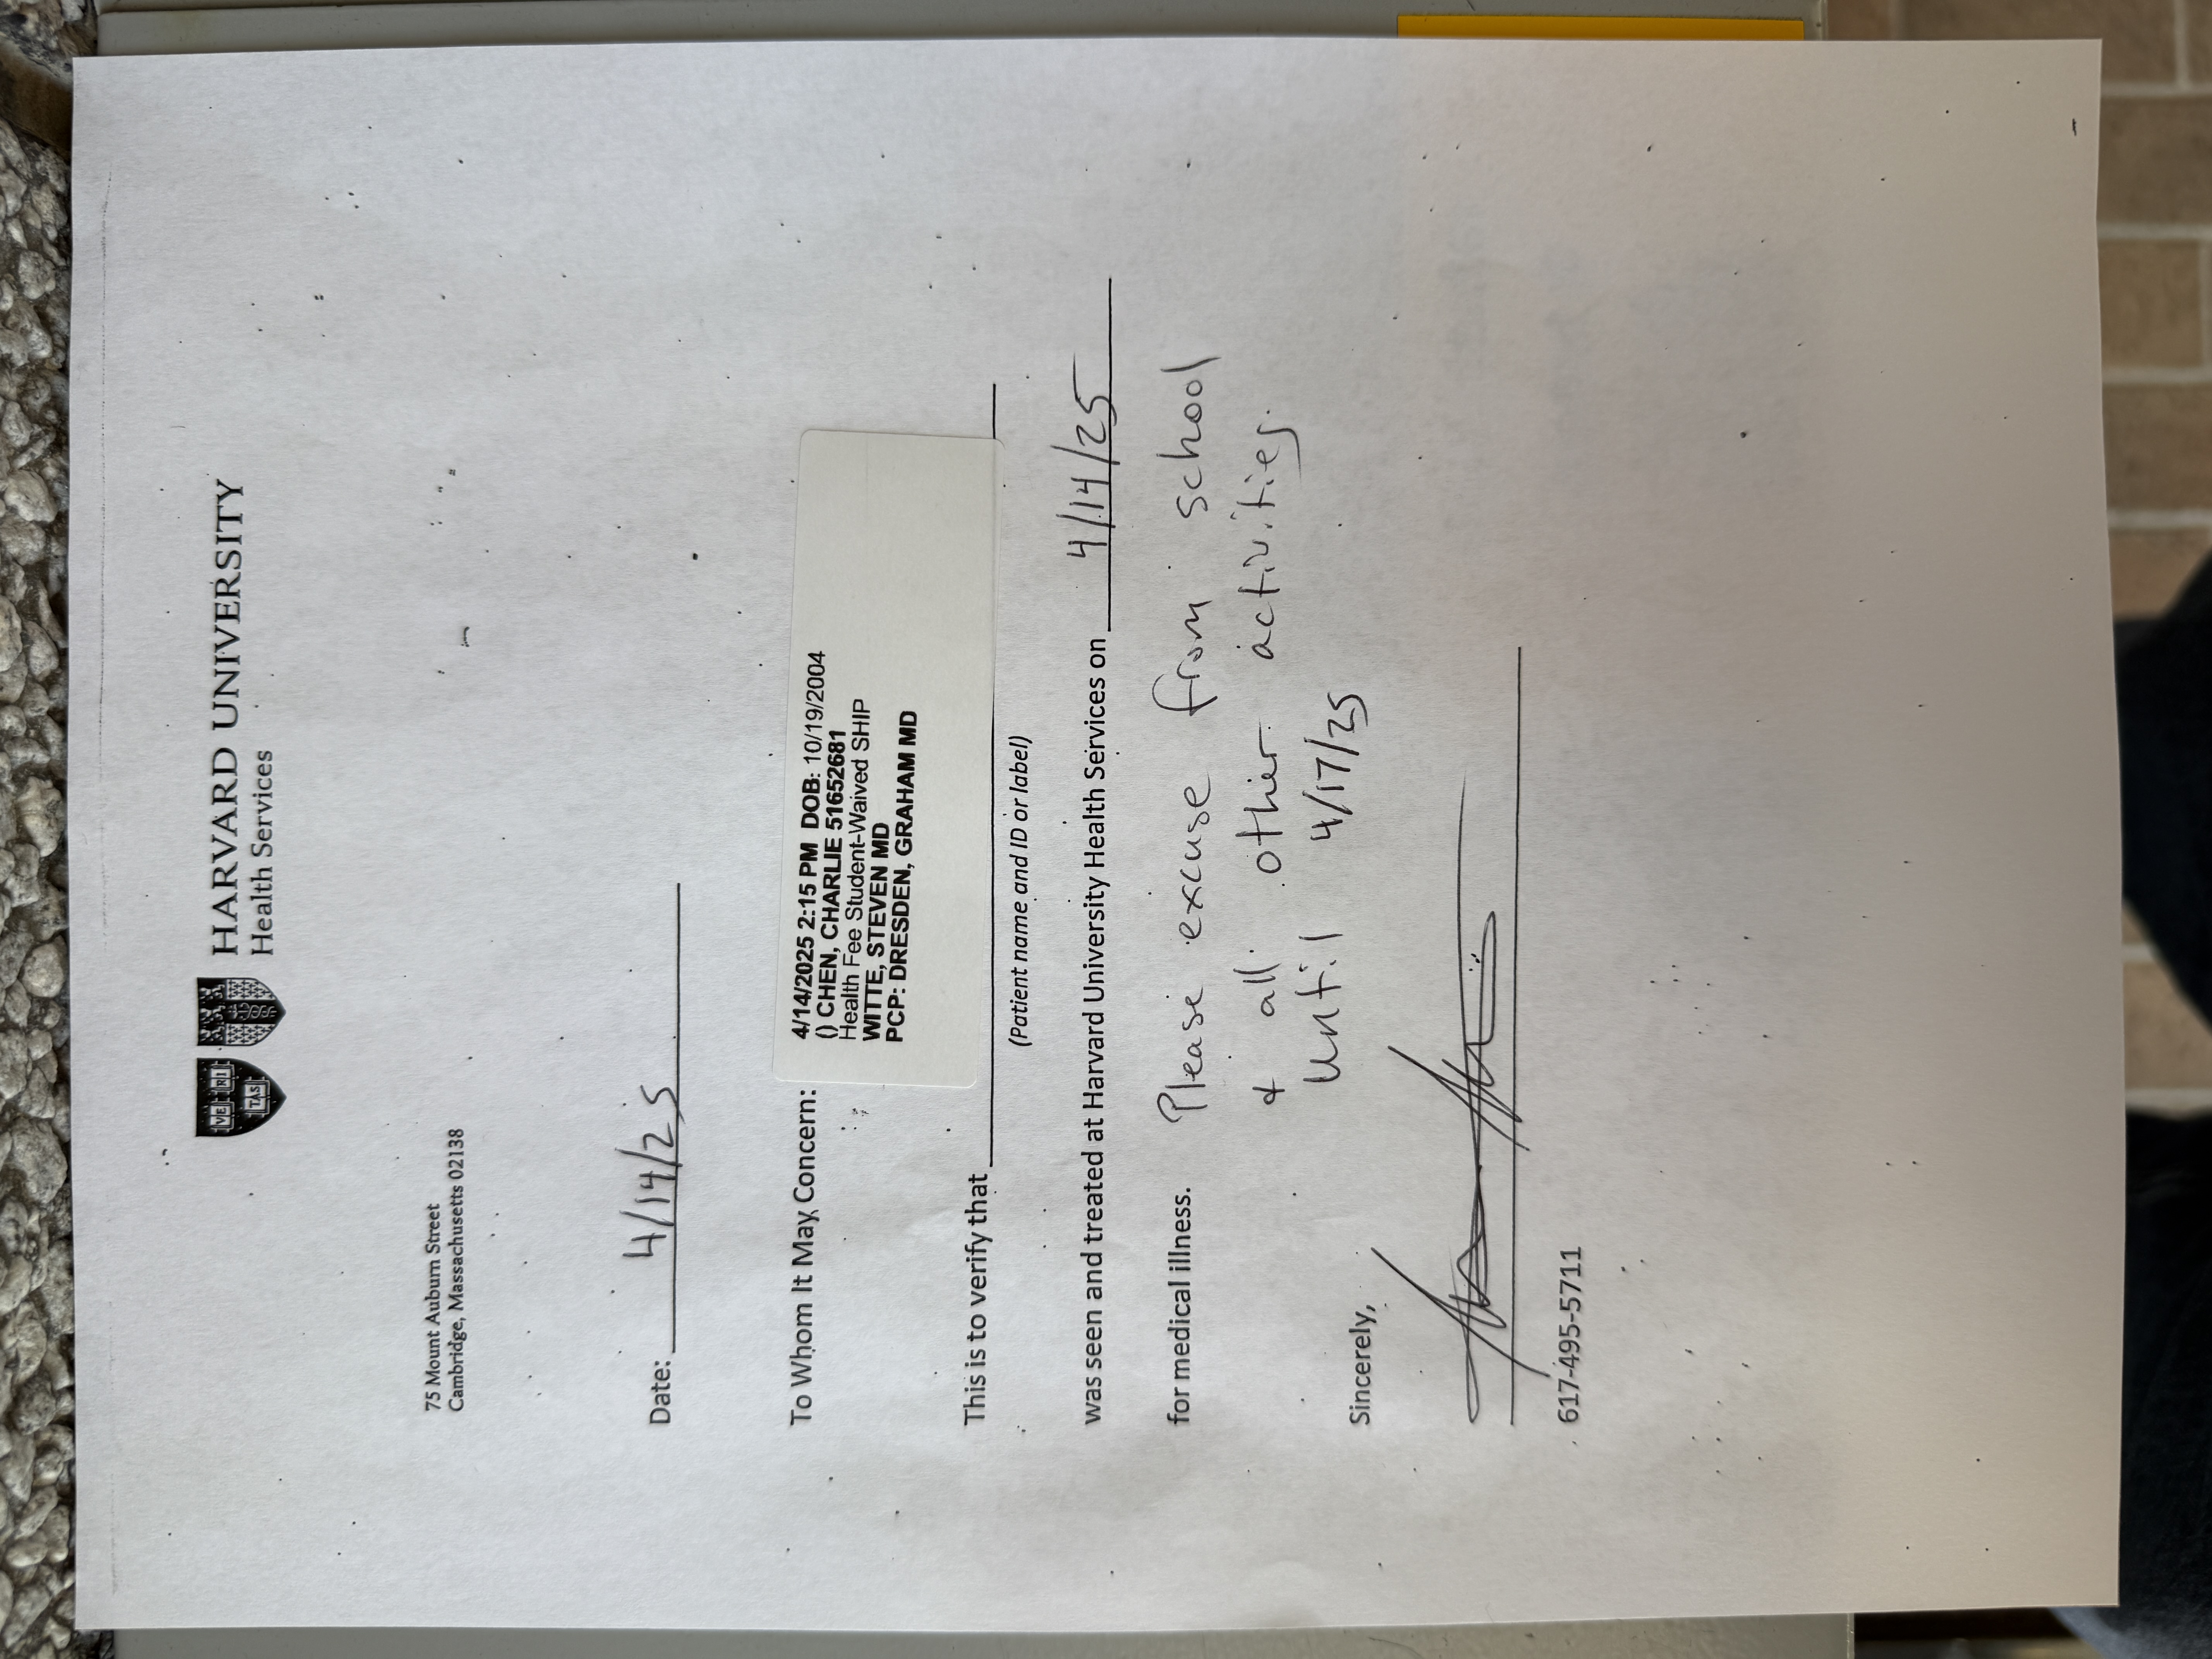 VE RI
TAS
HARVARD UNIVERSITY
Health Services
75 Mount Auburn Street
Cambridge, Massachusetts 02138
Date: 4/14/25
To Whom It May Concern:
4/14/2025 2:15 PM DOB: 10/19/2004
() CHEN, CHARLIE 51652681
Health Fee Student-Waived SHIP
WITTE, STEVEN MD
PCP: DRESDEN, GRAHAM MD
This is to verify that
(Patient name and ID or label)
was seen and treated at Harvard University Health Services on 4/14/25
for medical illness. Please excuse from school
& all other activities.
until 4/17/25
Sincerely,
617-495-5711